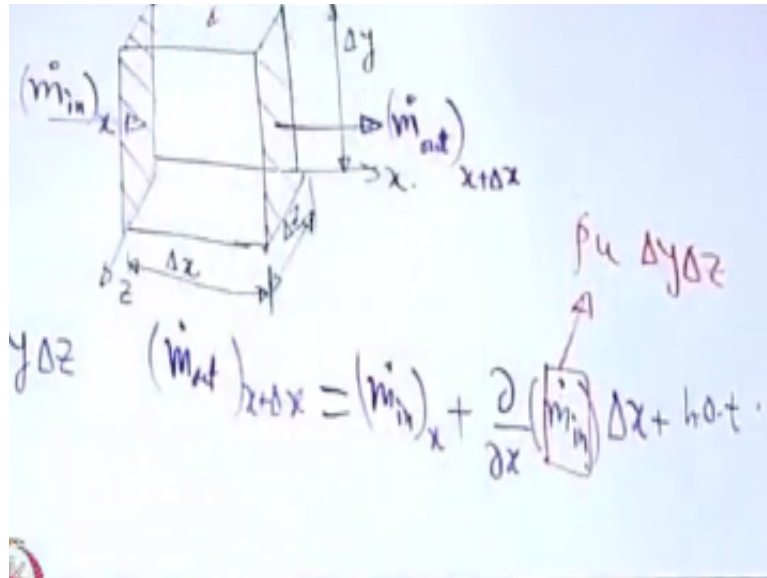 Δy
(ṁ_in)_x
(ṁ_out)_{x+Δx}
x
Δx
z
ρu ΔyΔz
yΔz (ṁ_out)_{x+Δx} = (ṁ_in)_x + ∂/∂x (ṁ_in) Δx + h.o.t.